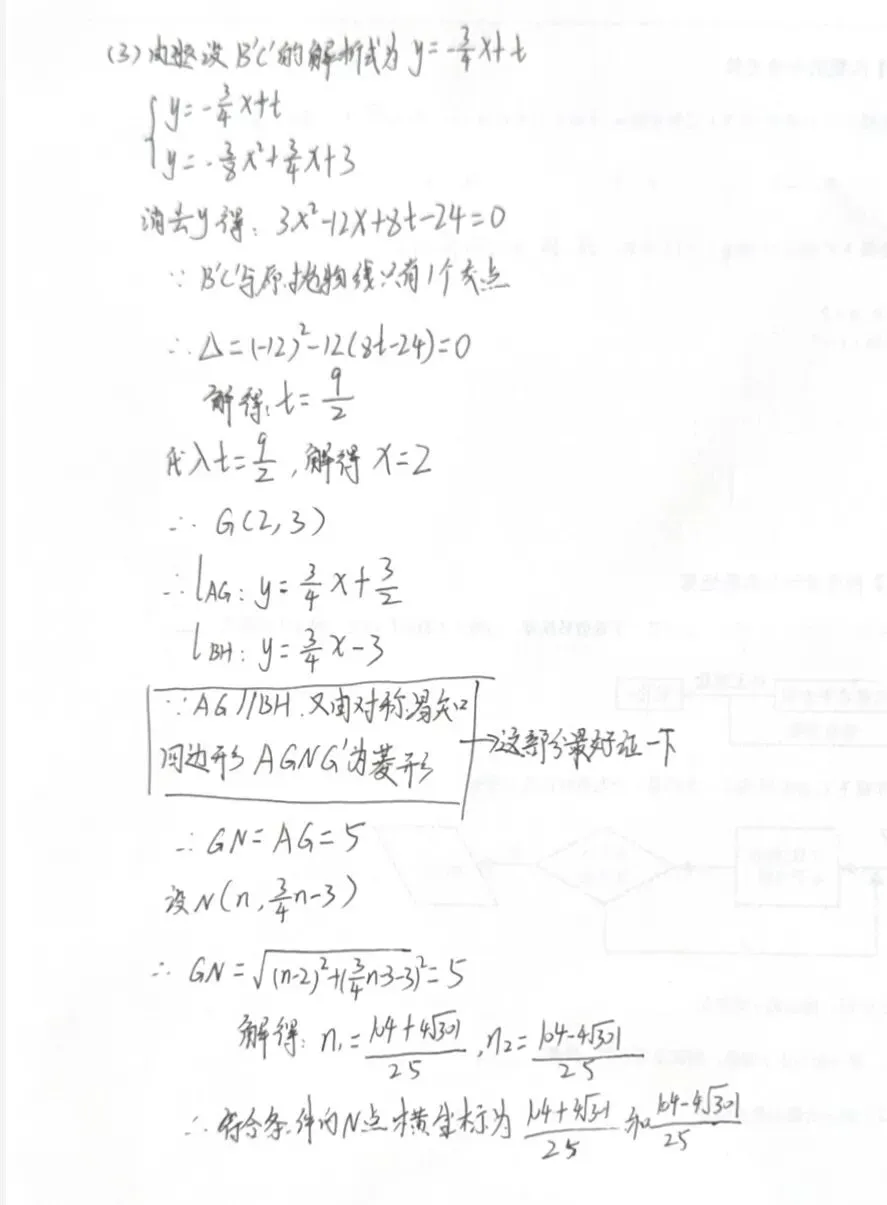 (3)由题设B'C'的解析式为 y=-3/4x+t
{y=-3/4x+t
y=-3/8x²+3/4x+3
消去y得: 3x²-12x+8t-24=0
∵ B'C'与原抛物线只有1个交点
∴ △=(-12)²-12(8t-24)=0
解得: t=9/2
代入t=9/2, 解得 x=2
∴ G(2,3)
∴ l_AG: y=3/4x+3/2
l_BH: y=3/4x-3
∵ AG//BH. 又由对称易知
四边形 AGNG'为菱形
→这部分最好证一下
∴ GN=AG=5
设N(n, 3/4n-3)
∴ GN=√((n-2)²+(3/4n-3-3)²)=5
解得: n₁=(104+4√301)/25, n₂=(104-4√301)/25
∴ 符合条件的N点横坐标为 (104+4√31)/25 和 (104-4√301)/25